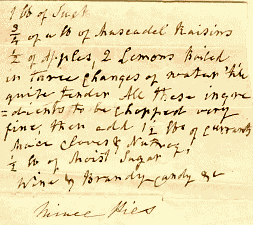 1 lb of Suet
3/4 of a lb of Muscadel Raisins
1/2 of Apples, 2 Lemons boiled
in three changes of water till
quite tender All these ingre
=dients to be chopped very
fine, then add 1 1/2 lbs of Currants
Mace Cloves & Nutmeg
1/2 lb of Moist Sugar
Wine & Brandy candy &c
Mince Pies